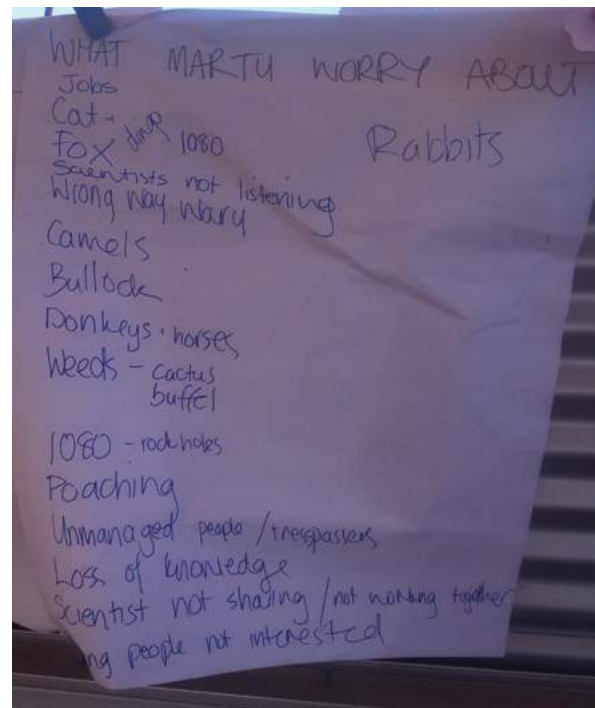 WHAT MARTU WORRY ABOUT
Jobs
Cat.
Fox 1080
Rabbits
Scientists not listening
Wrong way waru
Camels
Bullock
Donkeys + horses
Weeds - cactus
buffel
1080 - rock holes
Poaching
Unmanaged people / trespassers
Loss of knowledge
Scientist not sharing / not working together
ng people not interested